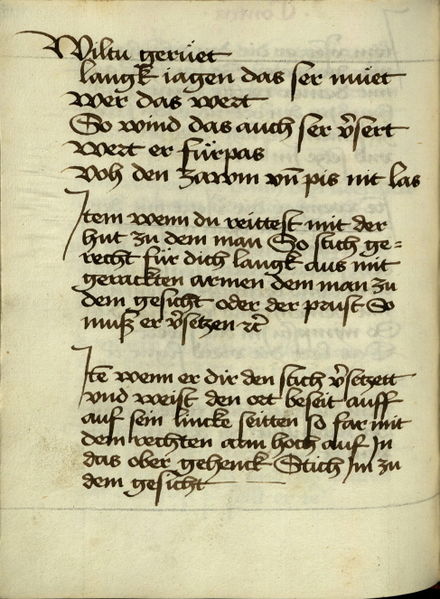 Wiltu geruet
langk iagen das ser müet
wer das wert
So wind das auch ser v̄sert
wert er fürpas
Voh den zawm vn̄ pis nit las
Item wenn du reittest mit der
hut zu dem man So stich ge=
recht für dich langk aus mit
gerackten armen dem man zu
dem gesicht oder der prust So
muß er v̄setzen rc̄
Itē wenn er dir den stich v̄setzett
vnd weist den ort beseit auff
auf sein lincke seitten so far mit
dem rechten arm hoch auf Jn
das ober gehenck Stich Jm zu
dem gesicht